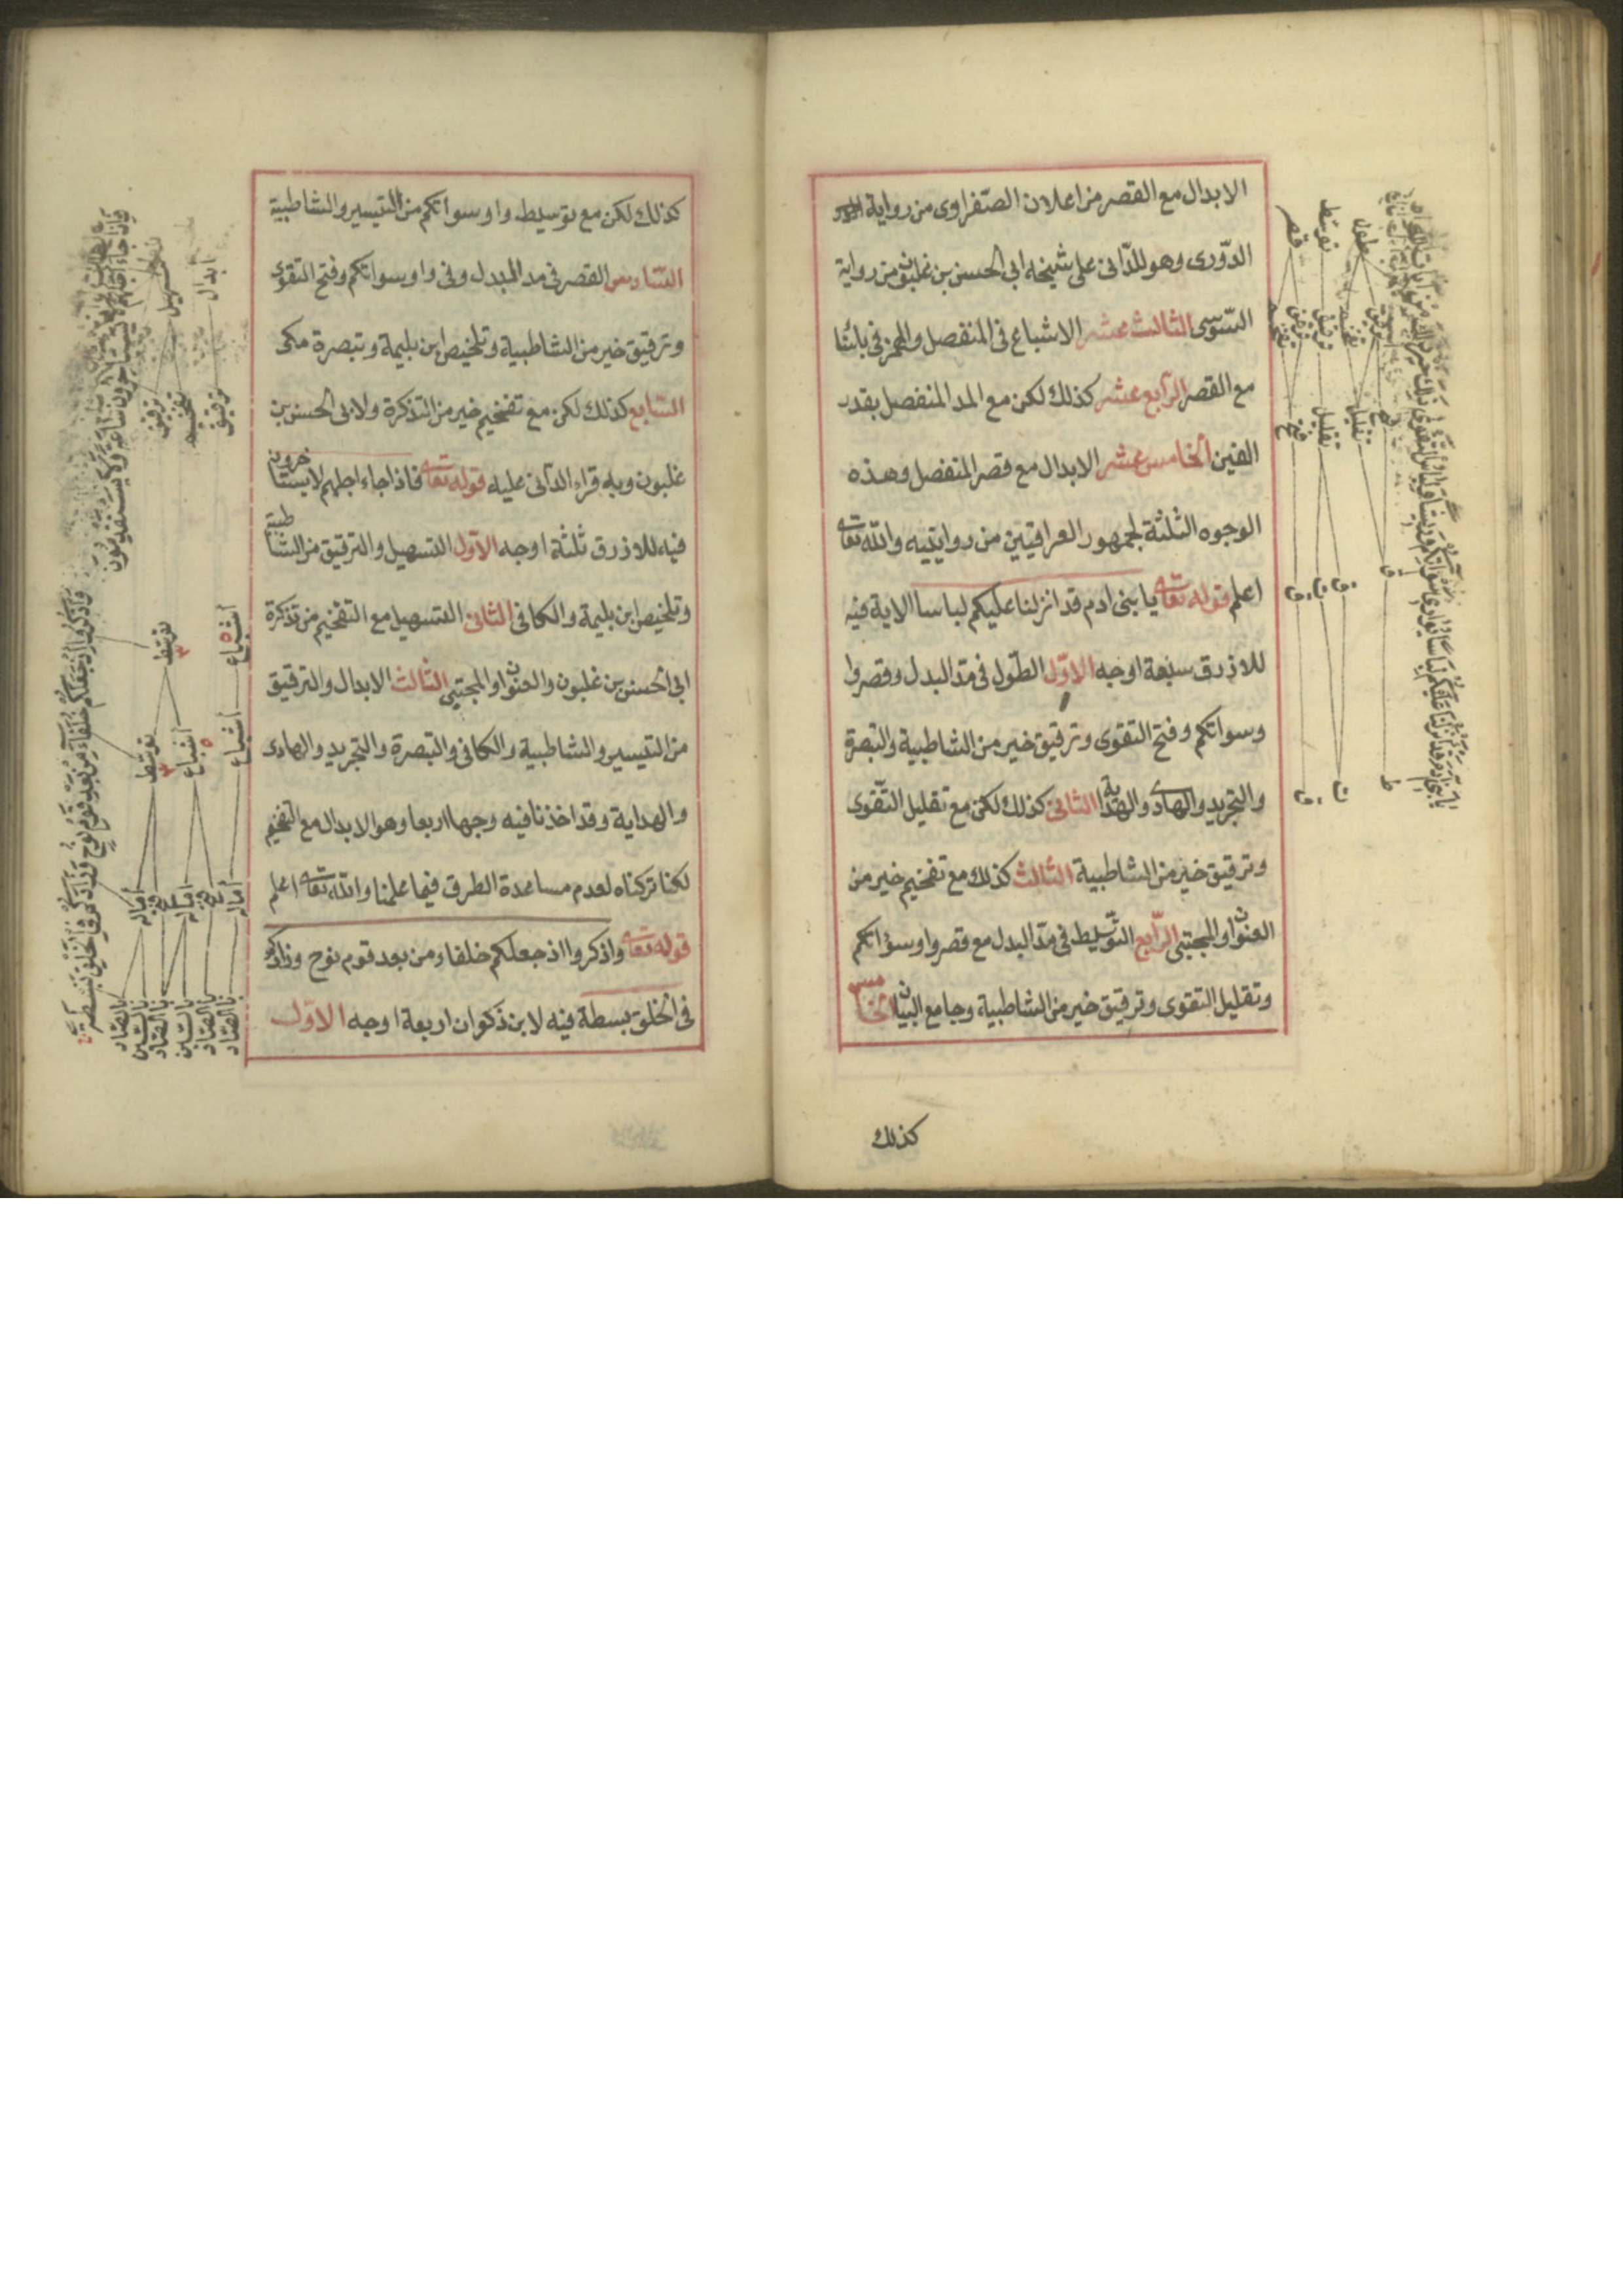 الابدال مع القصر من اعلان الصفراوى من رواية
الدّورى وهو للدّانى على شيخه ابى الحسن بن غلبون من رواية
السّوسى الثالث عشر الاشباع فى المنفصل والهمز فى بائنا
مع القصر الرّابع عشر كذلك لكن مع المد المنفصل بقدر
الفين الخامس عشر الابدال مع قصر المنفصل وهذه
الوجوه الثلثة لجمهور العراقيين من روايتيه والله تعالى
اعلم قوله تعالى يا بنى ادم قد انزلنا عليكم لباسا الاية فيه
للازرق سبعة اوجه الاوّل الطّول فى مدّ البدل وقصر وا
وسواتكم وفتح التقوى وترقيق خير من الشاطبية والتبصرة
والتجريد والهادى والهداية الثانى كذلك لكن مع تقليل التّقوى
وترقيق خير من الشاطبية الثالث كذلك مع تفخيم خير من
العنوان والمجتبى الرّابع التّوسّيط فى مدّ البدل مع قصر واو سؤاتكم
وتقليل التقوى وترقيق خير من الشاطبية وجامع البيان الخامس
كذلك
كذلك لكن مع توسيط واو سواتكم من التيسير والشاطبية
السّادس القصر فى مد المبدل وفى واو سواتكم وفتح التقوى
وترقيق خير من الشاطبية وتلخيص ابن بليمة وتبصرة مكى
السّابع كذلك لكن مع تفخيم خير من التذكرة ولابى الحسن بن
غلبون وبه قراء الدّانى عليه قوله تعالى فاذا جاء اجلهم لا يستاخرون
فيه للازرق ثلثة اوجه الاوّل التسهيل والترقيق من الشاطبية
وتلخيص ابن بليمة والكافى الثانى التسهيل مع التفخيم من تذكرة
ابى الحسن بن غلبون والعنوان والمجتبى الثالث الابدال والترقيق
من التيسير والشاطبية والكافى والتبصرة والتجريد والهادى
والهداية وقد اخذنا فيه وجها اربعا وهو الابدال مع التفخيم
لكنا تركناه لعدم مساعدة الطرق فيما علمنا والله تعالى اعلم
قوله تعالى واذكروا اذ جعلكم خلفاء من بعد قوم نوح وزادكم
فى الخلق بسطة فيه لابن ذكوان اربعة اوجه الاوّل
طول
توسّط
قصر
ترقيق
تفخيم
ترقيق
ترقيق
تفخيم
تقليل
تقليل
فتح
تسهيل
ابدال
ترقيق
تفخيم
ترقيق
توسّط
اشباع
توسّط
اشباع
اشباع
اماله
فتح
اماله
فتح
اماله
بالصّاد
بالسّين
بالصّاد
بالسّين
بالصّاد
بالصّاد